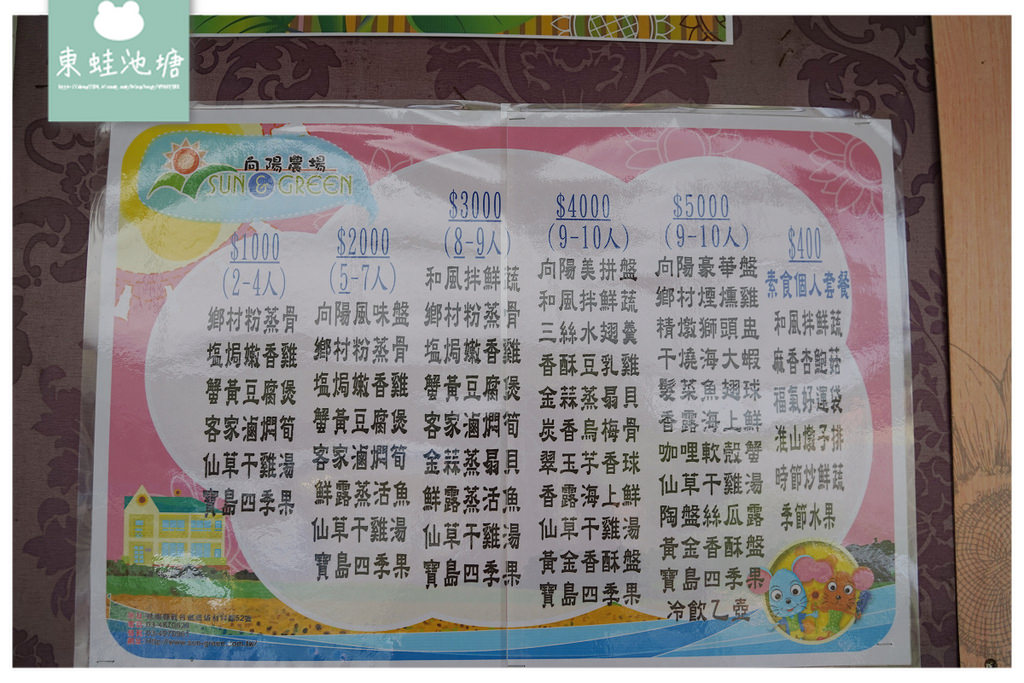 東蛙池塘
向陽農場
SUN & GREEN
$1000
(2-4人)
鄉村粉蒸骨
塩焗嫩香雞
蟹黃豆腐煲
客家滷燜筍
仙草干雞湯
寶島四季果
$2000
(5-7人)
向陽風味盤
鄉村粉蒸骨
塩焗嫩香雞
蟹黃豆腐煲
客家滷燜筍
鮮露蒸活魚
仙草干雞湯
寶島四季果
$3000
(8-9人)
和風拌鮮蔬
鄉村粉蒸骨
塩焗嫩香雞
蟹黃豆腐煲
客家滷燜筍
金蒜蒸扇貝
鮮露蒸活魚
仙草干雞湯
寶島四季果
$4000
(9-10人)
向陽美拼盤
和風拌鮮蔬
三絲水翅羹
香酥豆乳雞
金蒜蒸扇貝
炭香烏梅骨
翠玉芋香球
香露海上鮮
仙草干雞湯
黃金香酥盤
寶島四季果
$5000
(9-10人)
向陽豪華盤
鄉村煙燻雞
精燉獅頭盅
干燒海大蝦
髮菜魚翅球
香露海上鮮
咖哩軟殼蟹
仙草干雞湯
陶盤絲瓜露
黃金香酥盤
寶島四季果
冷飲乙壺
$400
素食個人套餐
和風拌鮮蔬
麻香杏鮑菇
福氣好運袋
淮山燉子排
時節炒鮮蔬
季節水果